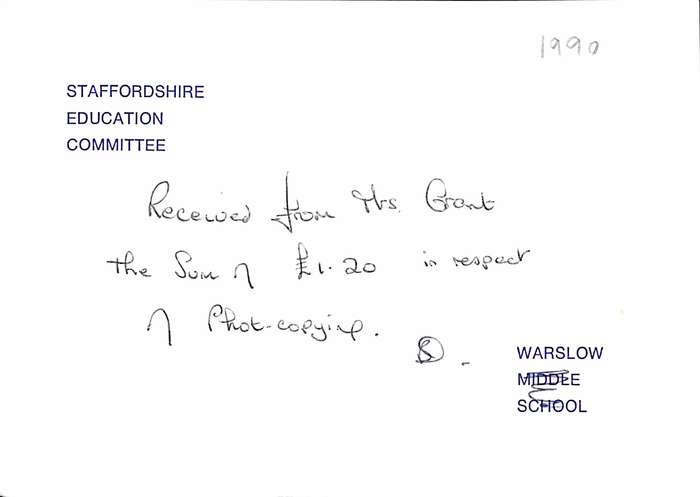 1990
STAFFORDSHIRE
EDUCATION
COMMITTEE
Received from Mrs. Grant
the Sum of £1.20 in respect
of Phot-copying.
WARSLOW
MIDDLE
SCHOOL